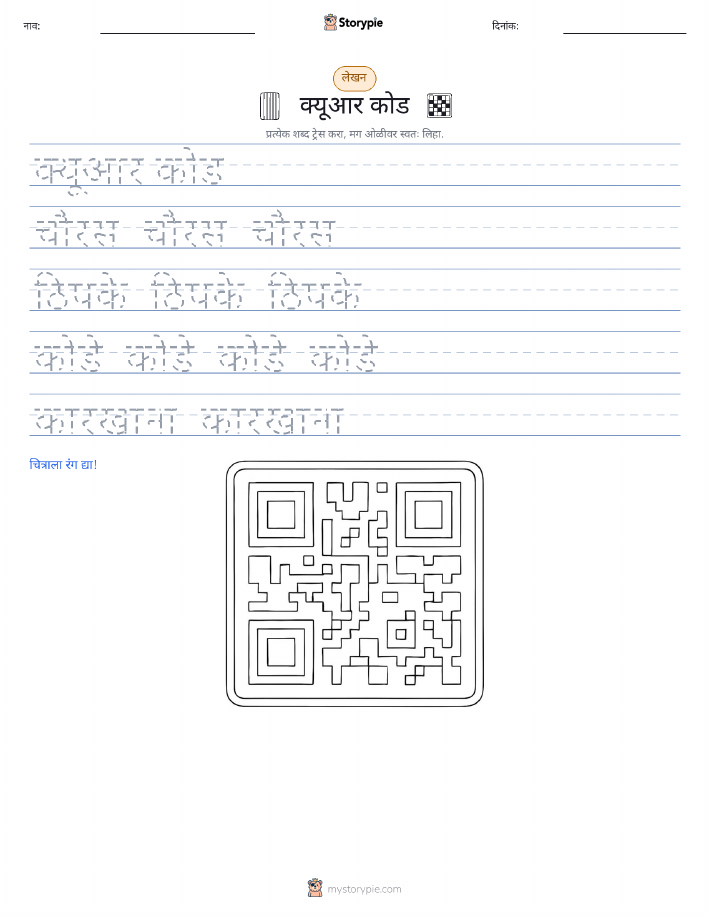 नाव:
Storypie
दिनांक:
लेखन
क्यूआर कोड
प्रत्येक शब्द ट्रेस करा, मग ओळीवर स्वतः लिहा.
क्यूआर कोड
चौरस चौरस चौरस
ठिपके ठिपके ठिपके
कोडे कोडे कोडे कोडे
कारखाना कारखाना
चित्राला रंग द्या!
mystorypie.com